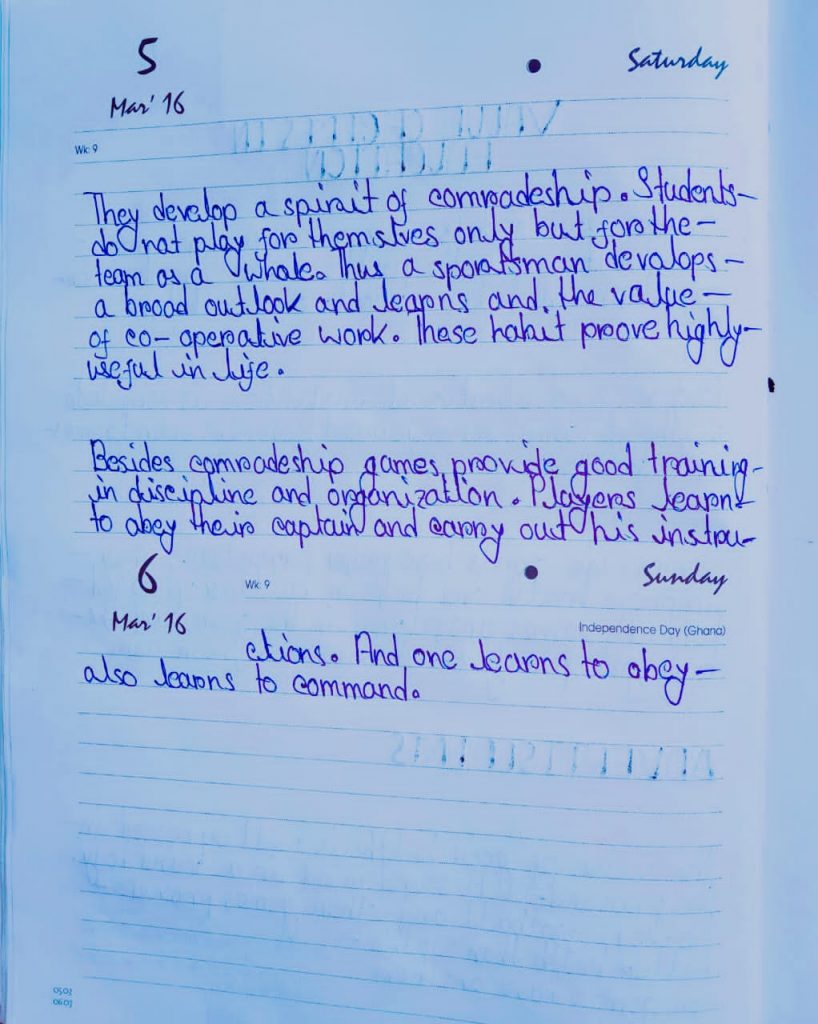 5
Saturday
Mar' 16
Wk 9
They develop a spirit of comradeship. Students-
do not play for themslves only but for the-
team as a whole. Thus a sportsman develops-
a broad outlook and learns and the value-
of co-operative work. These habit prove highly-
useful in life.
Besides comradeship games provide good training-
in discipline and organization. Players learn-
to obey their captain and carry out his instru-
6
Wk 9
Sunday
Mar' 16
Independence Day (Ghana)
ctions. And one learns to obey-
also learns to command.
0503
0603